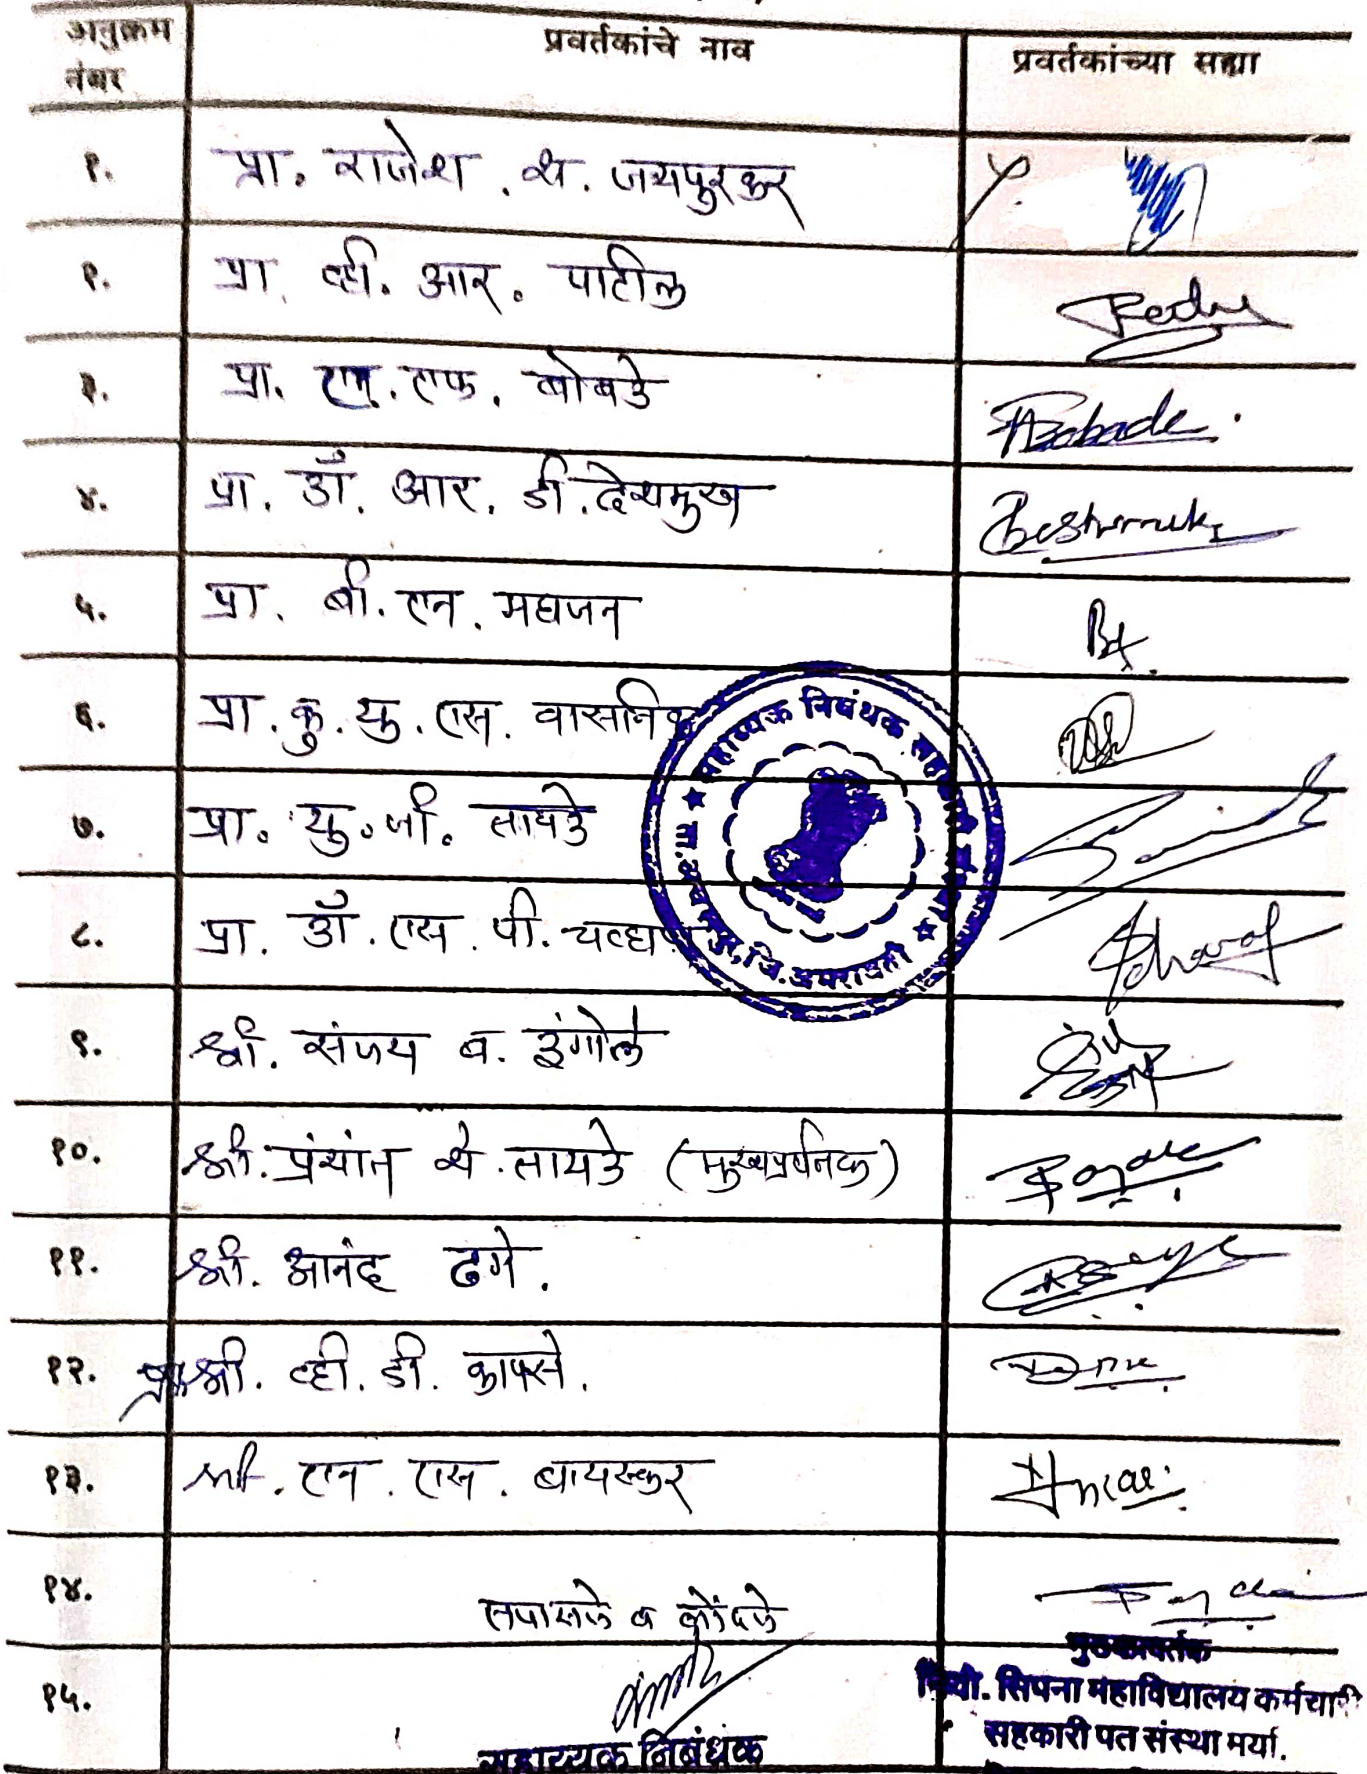 अनुक्रम नंबर प्रवर्तकांचे नाव प्रवर्तकांच्या सह्या
१. प्रा. राजेश . श. जयपुरकर
२. प्रा. व्ही. आर. पाटील
३. प्रा. एम. एफ. बोबडे Bobade
४. प्रा. डॉ. आर. डी. देशमुख Deshmukh
५. प्रा. बी. एन. महाजन
६. प्रा. कु. यु. एस. वासनिक
७. प्रा. यु. जी. तायडे
८. प्रा. डॉ. एस. पी. चव्हाण
९. श्री. संजय ब. इंगोले
१०. श्री. प्रशांत शे. तायडे (मुख्यप्रर्वतक)
११. श्री. आनंद ढगे.
१२. श्री. व्ही. डी. कापसे.
१३. श्री. एन. एस. बायस्कर
१४. तपासले व नोंदले
मुख्यप्रवर्तक
१५. नियो. सिपना महाविद्यालय कर्मचारी
सहकारी पत संस्था मर्या.
सहाय्यक निबंधक
सहाय्यक निबंधक सहकारी संस्था
जि. अमरावती